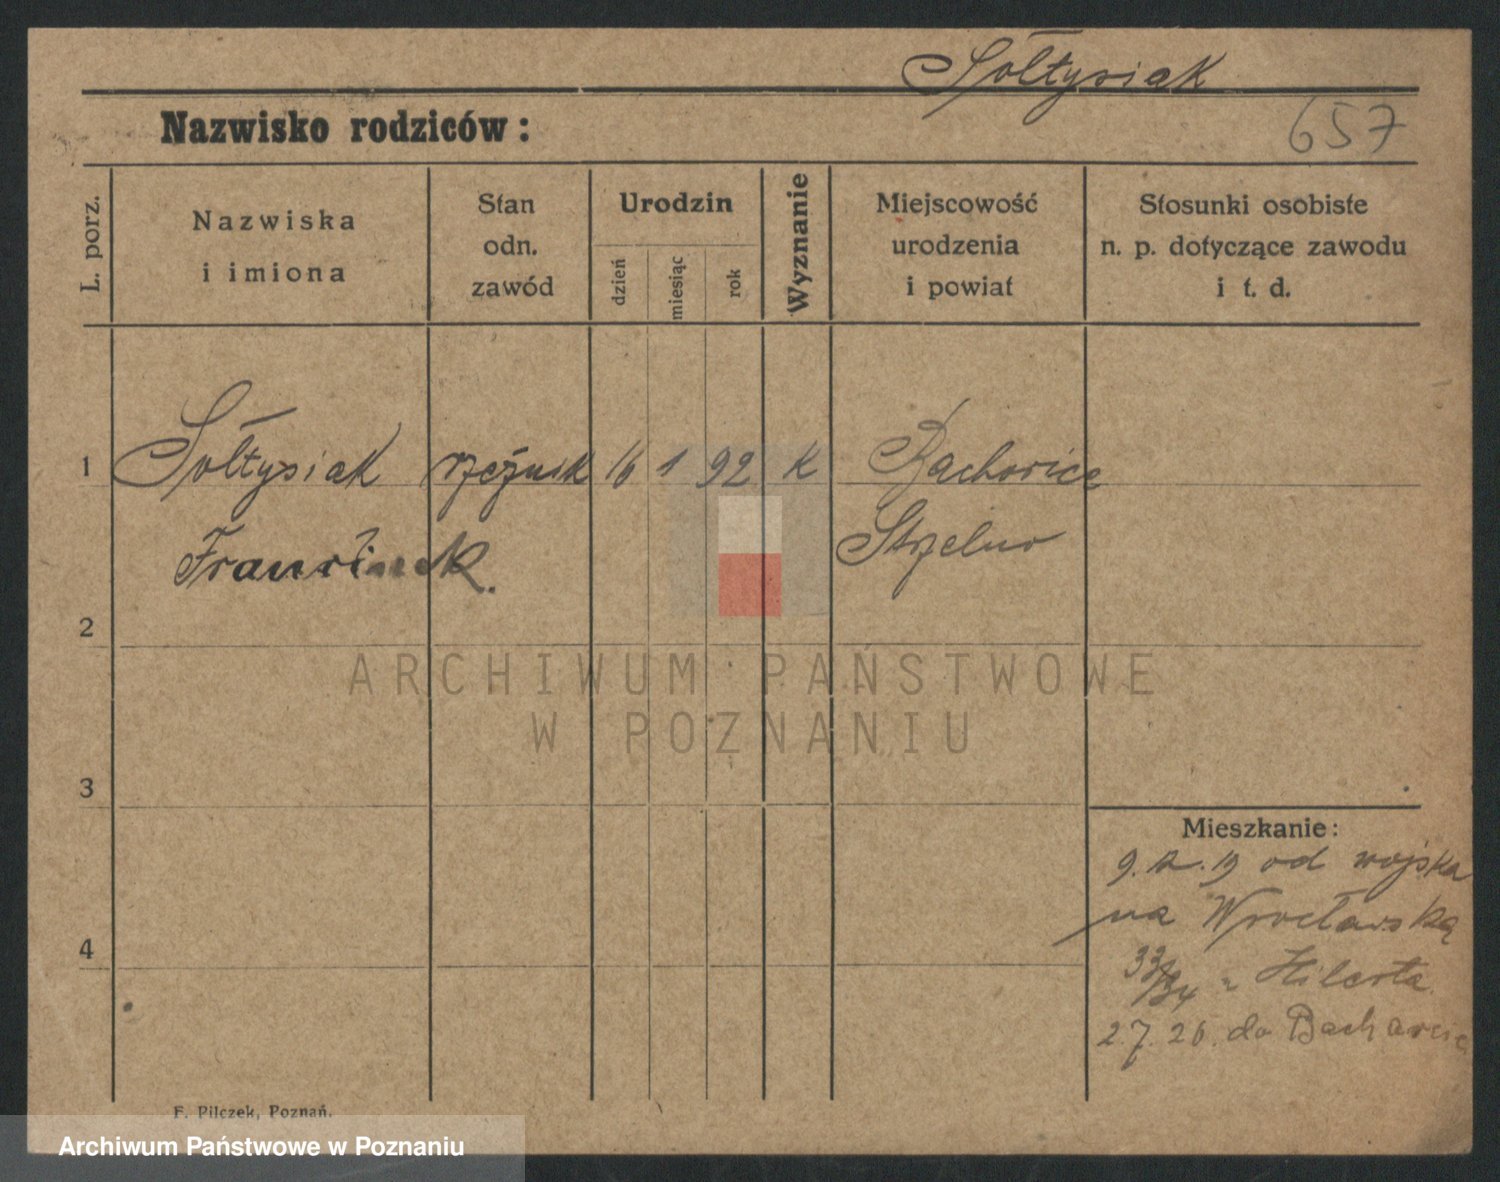 Sołtysiak
Nazwisko rodziców:
657
L. porz.
Nazwiska
i imiona
Stan
odn.
zawód
Urodzin
dzień
miesiąc
rok
Wyznanie
Miejscowość
urodzenia
i powiat
Stosunki osobiste
n. p. dotyczące zawodu
i t. d.
1
Sołtysiak rzeźnik 16 1 92 K Bachorice
Franciszek Strzelno
2
ARCHIWUM PAŃSTWOWE
W POZNANIU
3
Mieszkanie:
9.12.19 od wojska
na Wrocławską
33/34 u
4
2.7.26. do
F. Pilczek, Poznań.
Archiwum Państwowe w Poznaniu